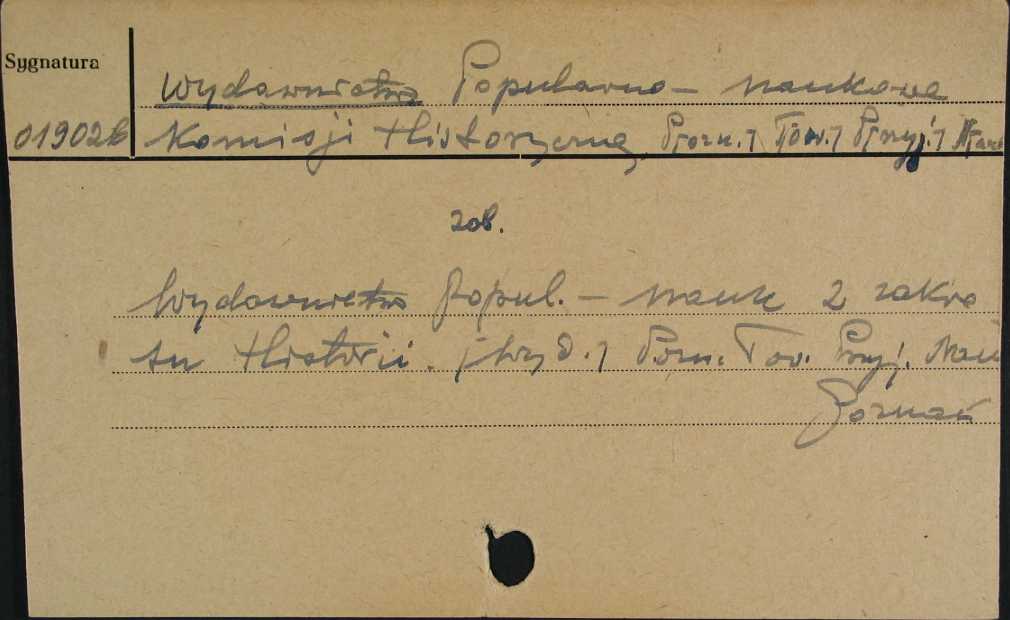 Sygnatura
Wydawnictwa Popularno - naukowe
01902b Komisji Historycznej Pozn. Tow. Przyj. Nauk
zob.
Wydawnictwo Popul. - nauk z zakre
su Historii. Wyd. Pozn. Tow. Przyj. Nau
Poznań